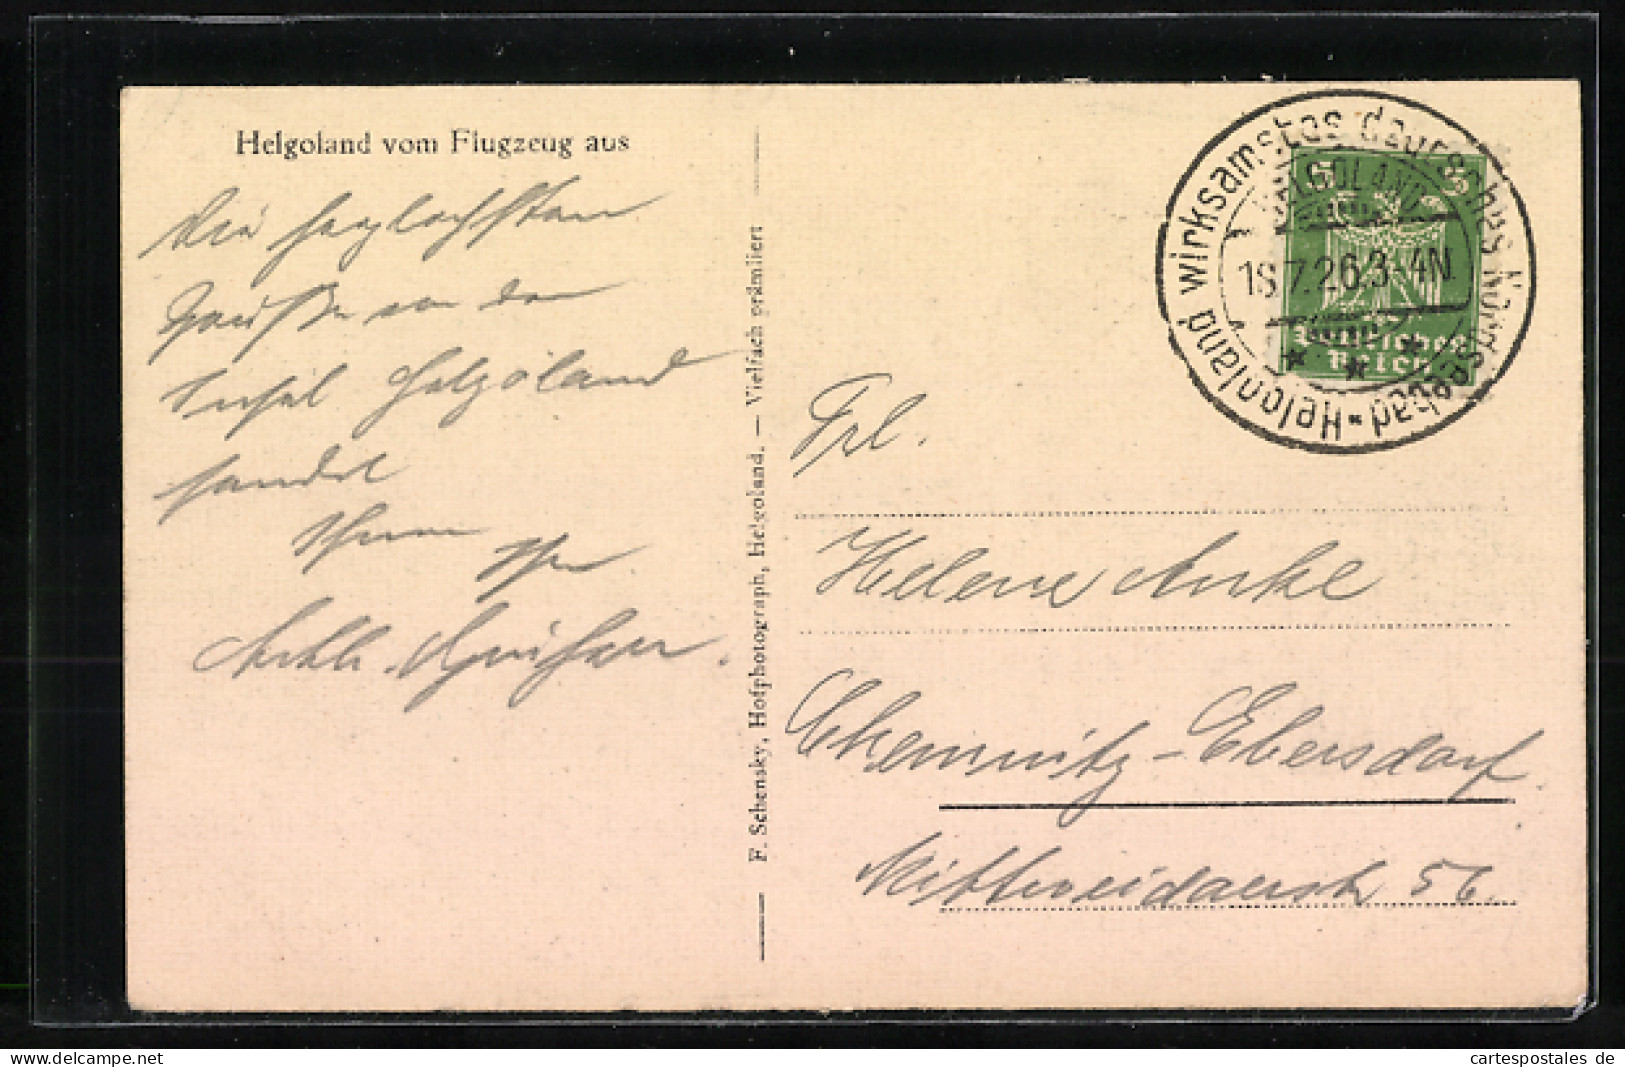 Helgoland vom Flugzeug aus
Die herzlichsten
Grüße von der
Insel Helgoland
sendet
Ihnen
Ihr
F. Schensky, Hofphotograph, Helgoland. — Vielfach prämiiert
Helgoland wirksamstes deutsches Nordseebad
HELGOLAND
18.7.26.3-4N.
* * *
5 5
Deutsches
Reich
Frl.
Helene Anke
Chemnitz-Ebersdorf.
Mittweidaerstr. 56.
cartespostales de